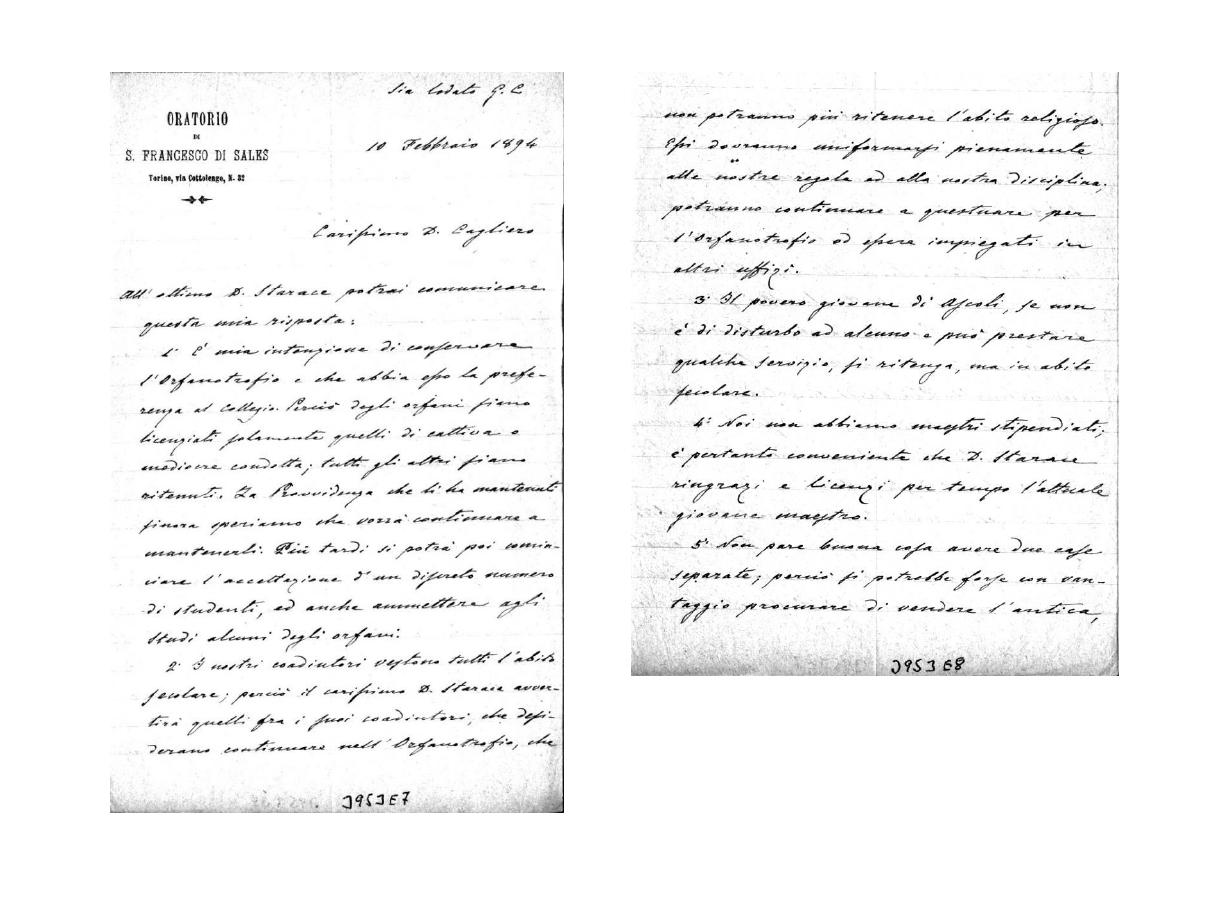 Sia lodato G. C
ORATORIO
DI
S. FRANCESCO DI SALES
Torino, via Cottolengo, N. 32
10 Febbraio 1894
Carissimo D. Cagliero
All' ottimo D. Starace potrai comunicare
questa mia risposta:
1° È mia intenzione di conservare
l'Orfanotrofio e che abbia esso la prefe-
renza al Collegio. Perciò degli orfani siano
licenziati solamente quelli di cattiva o
mediocre condotta; tutti gli altri siano
ritenuti. La Provvidenza che li ha mantenuti
finora speriamo che vorrà continuare a
mantenerli. Più tardi si potrà poi comin-
ciare l'accettazione d'un discreto numero
di studenti, ed anche ammettere agli
studi alcuni degli orfani.
2° I nostri coadiutori vestono tutti l'abito
secolare; perciò il carissimo D. Starace avver-
tirà quelli fra i suoi coadiutori, che desi-
derano continuare nell'Orfanotrofio, che
J953E7
non potranno più ritenere l'abito religioso.
Essi dovranno uniformarsi pienamente
alle nostre regole ed alla nostra disciplina;
potranno continuare a questuare per
l'Orfanotrofio od essere impiegati in
altri uffizi.
3° Il povero giovane di Ascoli, se non
è di disturbo ad alcuno e può prestare
qualche servizio, si ritenga, ma in abito
secolare.
4° Noi non abbiamo maestri stipendiati;
è pertanto conveniente che D. Starace
ringrazi e licenzi per tempo l'attuale
giovane maestro.
5° Non pare buona cosa avere due case
separate; perciò si potrebbe forse con van-
taggio procurare di vendere l'antica,
J953E8